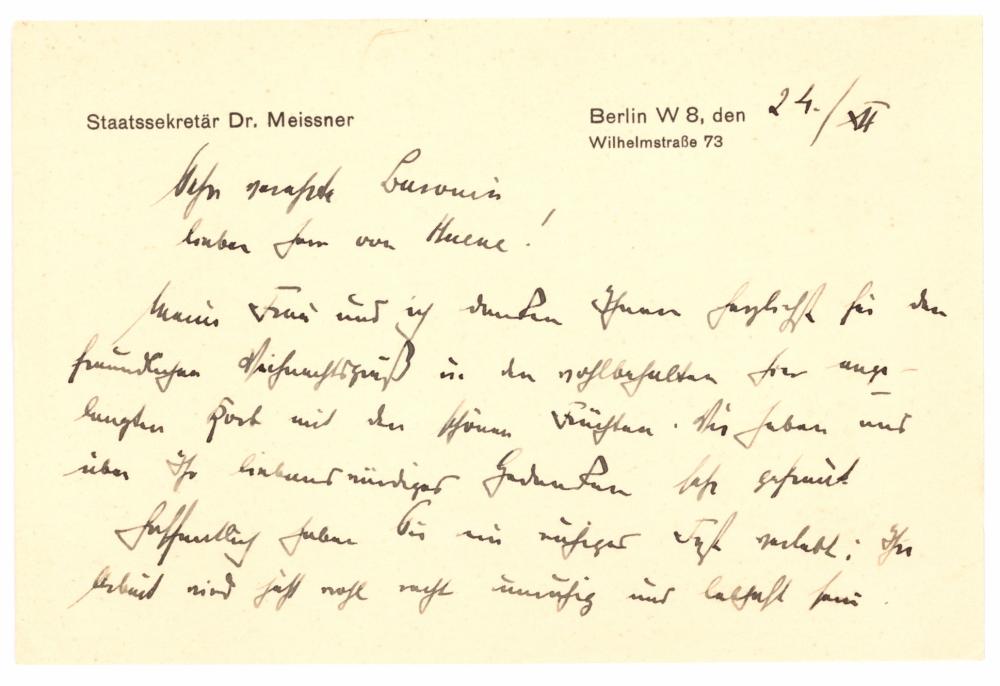 Staatssekretär Dr. Meissner
Berlin W 8, den 24./XII
Wilhelmstraße 73
Sehr verehrte Baronin
lieber Herr von Huene!
Meine Frau und ich danken Ihnen herzlichst für den
freundlichen Weihnachtsgruß u. den wohlbehalten hier ange-
langten Korb mit den schönen Früchten. Wir haben uns
über Ihr liebenswürdiges Gedenken sehr gefreut.
Hoffentlich haben Sie ein ruhiges Fest verlebt; Ihre
Arbeit wird jetzt wohl recht unruhig und lebhaft sein.